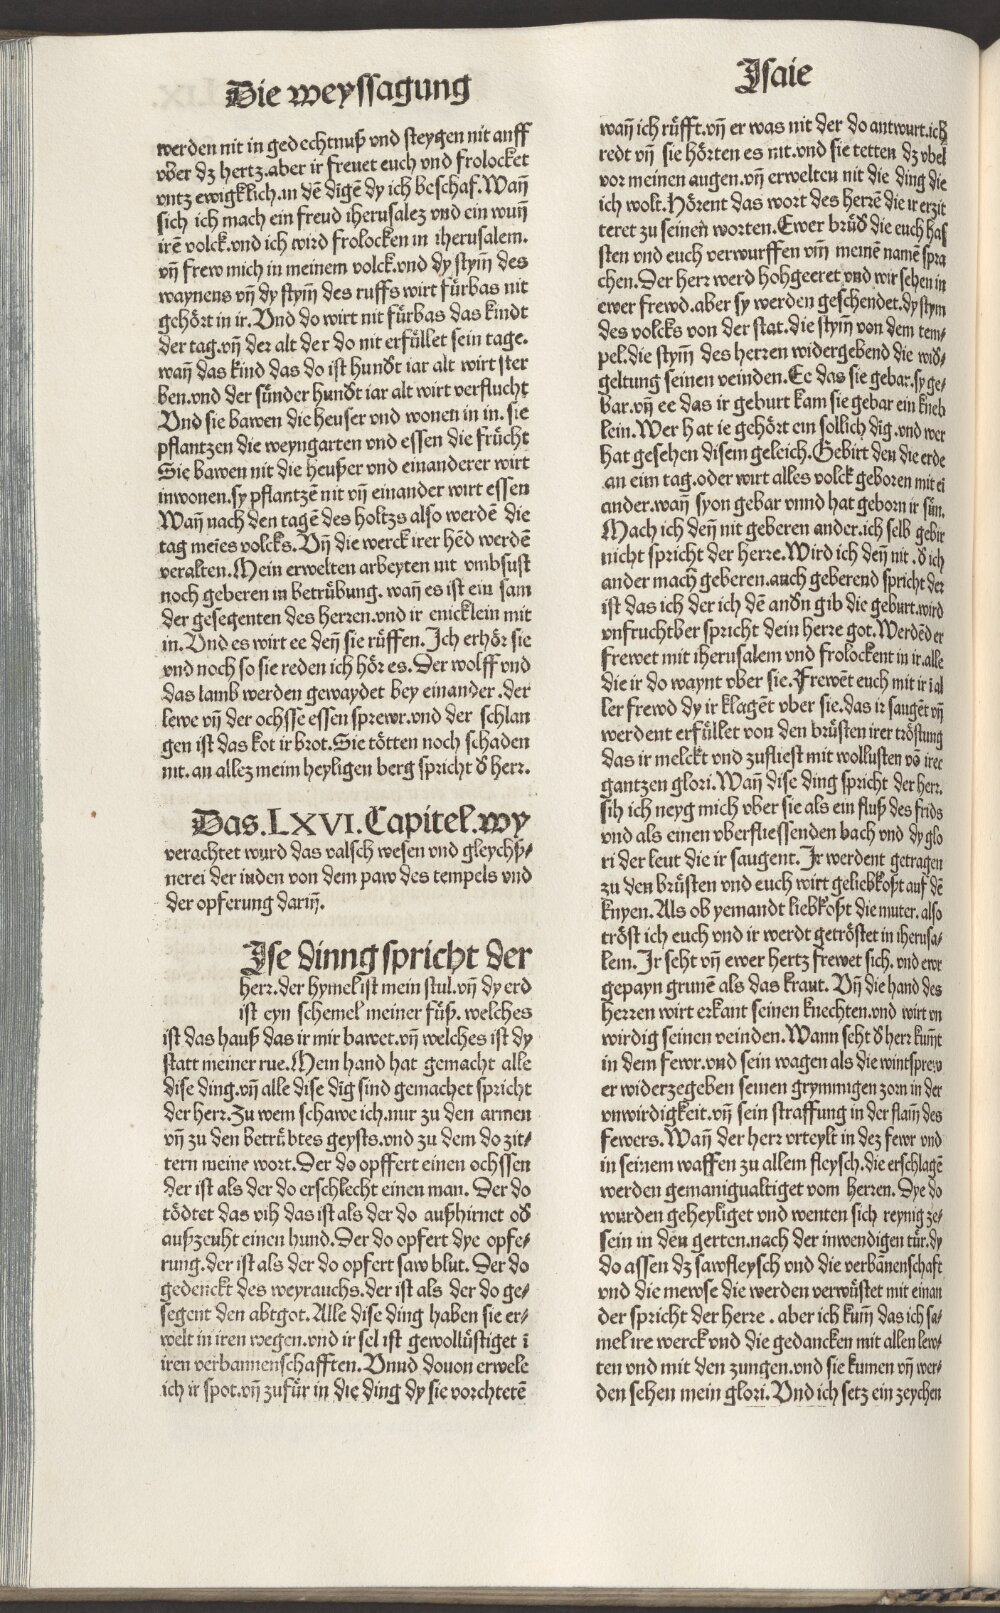 Die weyssagung
werden nit in gedechtnuß vnd steygen nit auff
vͦber dz hertz.aber ir frewet euch vnd frolocket
vntz ewigklich.in dē dīgē dy ich beschaf.Wan̄
sich ich mach ein freud iherusalez vnd ein wun̄
irē volck.vnd ich wird frolocken in iherusalem.
vn̄ frew mich in meinem volck.vnd dy stym̄ des
waynens vn̄ dy stym̄ des ruffs wirt fürbas nit
gehört in ir.Vnd do wirt nit fürbas das kindt
der tag.vn̄ der alt der do nit erfüllet sein tage.
wan̄ das kind das do ist hundt iar alt wirt ster
ben.vnd der sünder hundt iar alt wirt verflucht
Vnd sie bawen die heuser vnd wonen in in. sie
pflantzen die weyngarten vnd essen die frücht
Sie bawen nit die heußer vnd einanderer wirt
inwonen.sy pflantzē nit vn̄ einander wirt essen
Wan̄ nach den tagē des holtzs also werdē die
tag meīes volcks.Vn̄ die werck irer hēd werdē
veralten.Mein erwelten arbeyten nit vmbsust
noch geberen in betrübung. wan̄ es ist ein sam
der gesegenten des herren.vnd ir enicklein mit
in.Vnd es wirt ee den̄ sie rüffen.Ich erhör sie
vnd noch so sie reden ich hör es.Der wolff vnd
das lamb werden gewaydet bey einander.der
lewe vn̄ der ochsse essen sprewr.vnd der schlan
gen ist das kot ir brot.Sie tötten noch schaden
nit.an allez meim heyligen berg spricht d herr.
Das.LXVI.Capitel.wy
verachtet wurd das valsch wesen vnd gleychß⸗
nerei der iuden von dem paw des tempels vnd
der opferung darin̄.
Ise dinng spricht der
herr.der hymel ist mein stul.vn̄ dy erd
ist eyn schemel meiner füß. welches
ist das hauß das ir mir bawet.vn̄ welches ist dy
statt meiner rue.Mein hand hat gemacht alle
dise ding.vn̄ alle dise dīg sind gemachet spricht
der herr.Zu wem schawe ich.nur zu den armen
vn̄ zu den betrübtes geysts.vnd zu dem do zit⸗
tern meine wort.Der do opffert einen ochssen
der ist als der do erschlecht einen man. Der do
tödtet das vih das ist als der do außhirnet od
außzeuht einen hund.Der do opfert dye opfe⸗
rung.der ist als der do opfert saw blut. Der do
gedenckt des weyrauchs.der ist als der do ge⸗
segent den abtgot.Alle dise ding haben sie er⸗
welt in iren wegen.vnd ir sel ist gewollüstiget ī
iren verbannenschafften.Vnnd douon erwele
ich ir spot.vn̄ zufür in die ding dy sie vorchtetē
Isaie
wan̄ ich rüfft.vn̄ er was nit der do antwurt.ich
redt vn̄ sie hörten es nit.vnd sie tetten dz vbel
vor meinen augen.vn̄ erwelten nit die ding die
ich wolt.Hörent das wort des herrē die ir erzit
teret zu seinen worten.Ewer brüd die euch has
sten vnd euch verwurffen vm̄ meinē namē spra
chen.Der herr werd hohgeeret vnd wir sehen in
ewer frewd.aber sy werden geschendet.dy stym
des volcks von der stat.die stym̄ von dem tem⸗
pel.die stym̄ des herren widergebend die wid⸗
geltung seinen veinden.Ee das sie gebar.sy ge⸗
bar.vn̄ ee das ir geburt kam sie gebar ein kneb
lein.Wer hat ie gehört ein sollich dīg.vnd wer
hat gesehen disem geleich.Gebirt den die erde
an eim tag.oder wirt alles volck geboren mit ei
ander.wan̄ syon gebar vnnd hat geborn ir sün.
Mach ich den̄ nit geberen ander.ich selb gebir
nicht spricht der herre.Wird ich den̄ nit.d ich
ander mach geberen.auch geberend spricht der
ist das ich der ich dē andn gib die geburt.wird
vnfruchtber spricht dein herre got.Werdēd er
frewet mit iherusalem vnd frolockent in ir.alle
die ir do waynt vber sie.Frewēt euch mit ir ī al
ler frewd dy ir klagēt vber sie.das ir saugēt vn̄
werdent erfüllet von den brüsten irer tröstung
das ir melckt vnd zufliest mit wollusten vō irer
gantzen glori.Wan̄ dise ding spricht der herr.
sih ich neyg mich vber sie als ein fluß des frids
vnd als einen vberfliessenden bach vnd dy glo
ri der leut die ir saugent. Ir werdent getragen
zu den brüsten vnd euch wirt geliebkoßt auf dē
knyen. Als ob yemandt liebkoßt die muter. also
tröst ich euch vnd ir werdt getröstet in iherusa⸗
lem. Ir seht vn̄ ewer hertz frewet sich. vnd ewr
gepayn grunē als das kraut. Vn̄ die hand des
herren wirt erkant seinen knechten.vnd wirt vn
wirdig seinen veinden.Wann seht d herr kum̄t
in dem fewr.vnd sein wagen als die wintsprew
er widerzegeben seinen grymmigen zorn in der
vnwirdigkeit.vn̄ sein straffung in der flam̄ des
fewers.Wan̄ der herr vrteylt in dez fewr vnd
in seinem waffen zu allem fleysch.die erschlagē
werden gemanigualtiget vom herren. Dye do
wurden geheyliget vnd wenten sich reynig ze⸗
sein in den gerten.nach der inwendigen tür.dy
do assen dz sawfleysch vnd die verbānenschaft
vnd die mewse die werden verwüstet mit einan
der spricht der herre . aber ich kum̄ das ich sa⸗
mel ire werck vnd die gedancken mit allen lew⸗
ten vnd mit den zungen.vnd sie kumen vn̄ wer⸗
den sehen mein glori.Vnd ich setz ein zeychen